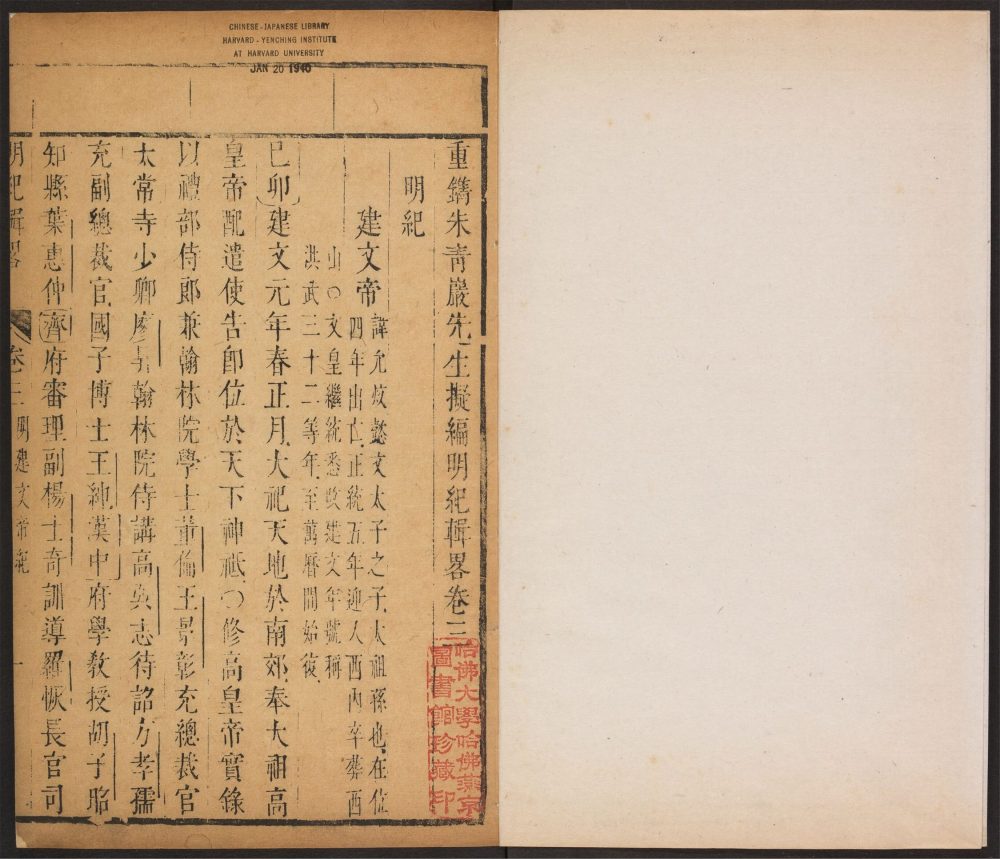 CHINESE-JAPANESE LIBRARY
HARVARD-YENCHING INSTITUTE
AT HARVARD UNIVERSITY
JAN 20 1940
重鐫朱青巖先生擬編明紀輯畧卷三
明紀
建文帝
諱允炆懿文太子之子太祖孫也在位
四年出亡正統五年迎入西内卒葬西
山○文皇繼統悉改建文年號稱
洪武三十二等年至萬曆間始復
己卯建文元年春正月大祀天地於南郊奉大祖高
皇帝配遣使告卽位於天下神祗○修高皇帝實錄
以禮部侍郎兼翰林院學士董倫王景彰充總裁官
太常寺少卿廖昇翰林院侍講高㢲志待詔方孝孺
充副總裁官國子博士王紳漢中府學敎授胡子昭
知縣葉惠仲齊府審理副楊士奇訓導羅恢長官司
明紀輯畧
卷三
明建文帝紀
一
哈佛大學哈佛燕京
圖書館珍藏印